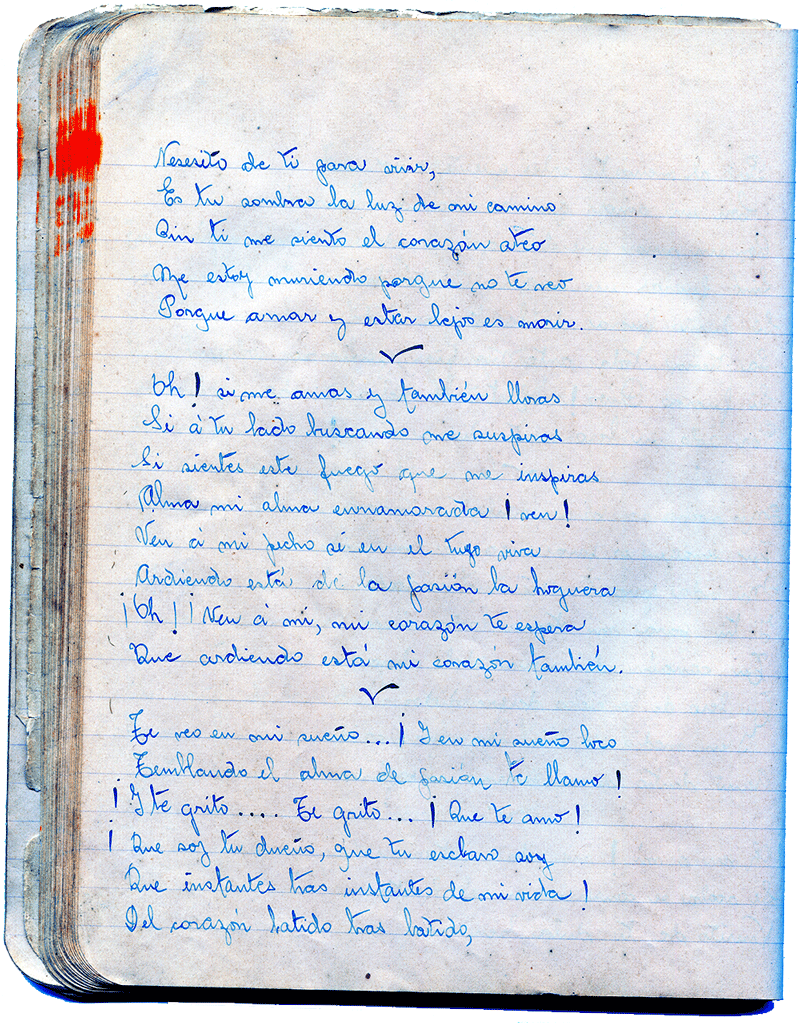 Nesesito de ti para vivir,
Es tu sombra la luz de mi camino
Sin ti me siento el corazón ateo
Me estoy muriendo porque no te veo
Porque amar y estar lejos es morir.
Oh! si me amas y también lloras
Si á tu lado buscando me suspiras
Si sientes este fuego que me inspiras
¡Alma mi alma ennamorada ¡ven!
Ven á mi pecho si en el tuyo viva
Ardiendo está de la pasión la hoguera
¡Oh!¡Ven á mi, mi corazón te espera
Que ardiendo está mi corazón también.
Te veo en mi sueño...¡Y en mi sueño loco
Temblando el alma de pasión te llamo!
¡Y te grito.... Te grito...¡Que te amo!
¡Que soy tu dueño, que tu esclavo soy
Que instantes tras instantes de mi vida!
Del corazón latido tras latido,